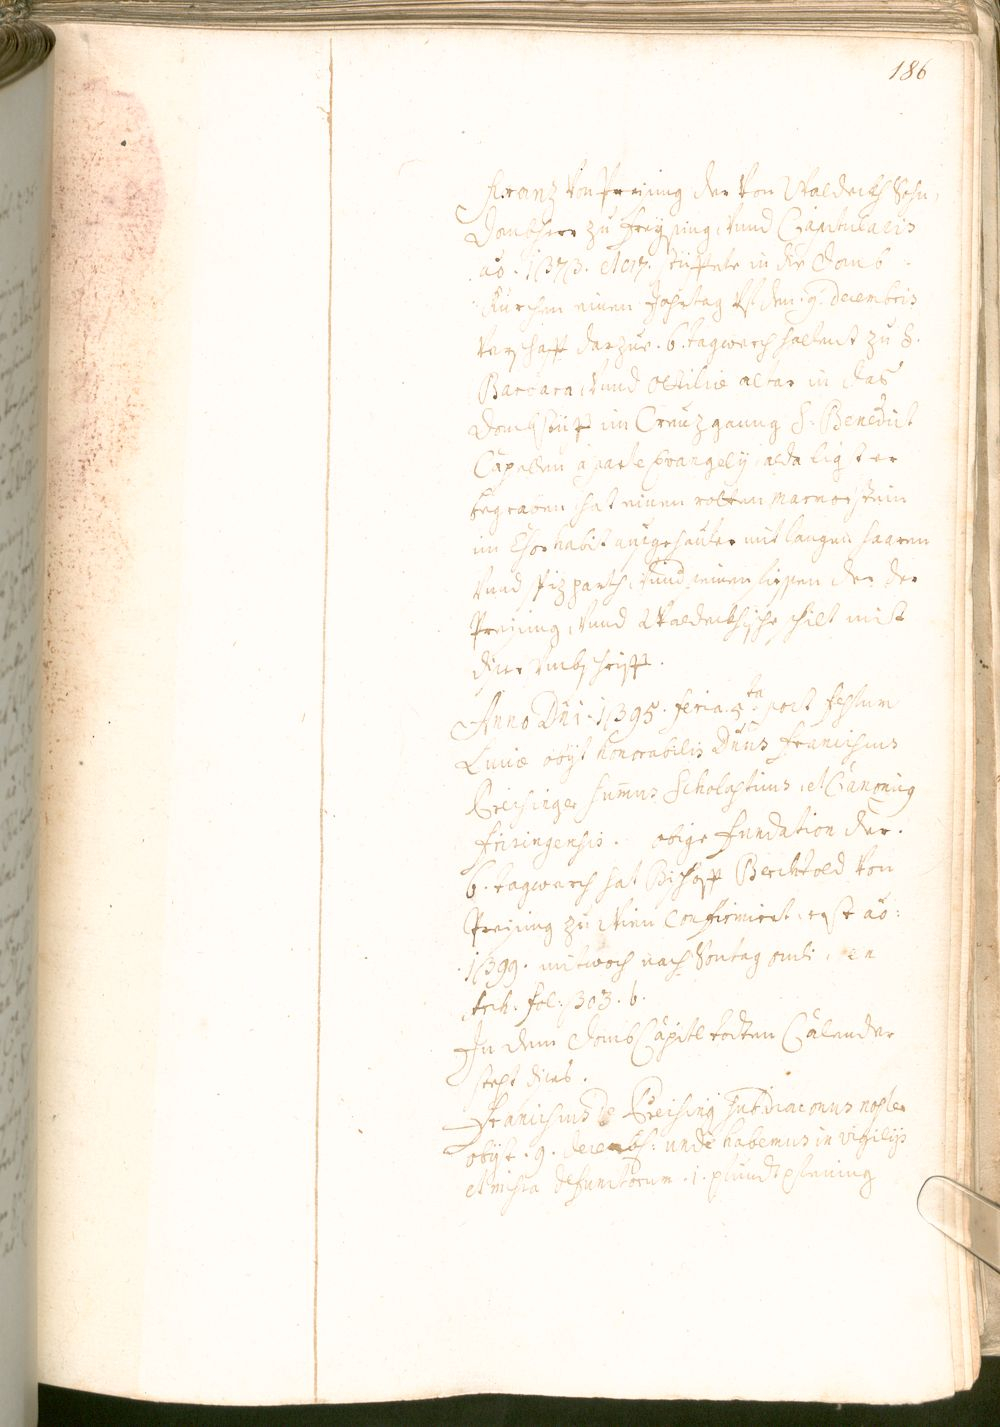 186
Franz von Preÿsing der von Waldeckh Sohn,
Dombherr zu Freÿsing, vnnd Capitularis
aõ. 1373. stifftete in die Domb
Kürchen einen Jahrtag vf den 9. decembris
verschafft darzue. 6. tagwerch zu S.
Barbara, vnnd Ottiliæ altar in das
Dombstüfft im Creuzganng S. Benedict
Capellen à parte Evangelÿ, alda ligt er
begraben hat einen rotten Marmorstein
im Chor habit außgehauter mit langen haaren
vnnd spizparth, vnnd seinen der der
Preÿsing, vnnd Waldeckhische schilt mit
diser Vmbschrifft.
Anno Dñi. 1395. feria. 5ta post festum
Luciæ obÿt honorabilis Dñus Franciscus
Preisinger sum̄us Scholasticus, et Canonicq
frisingensis. obige fundation der.
6. tagwerch hat Bischoff Berchtold von
Preÿsing zu Wien Confirmiert aõ:
1399. mitwoch nach Sontag
fol: 303. b.
In dem DombCapitl todten Calender
steht dises.
Franciscus de Preising subdiaconus noster
obÿt. 9. decembs: unde habemus in vigilÿs
et missa defunctorum. 1. pfundt pfening